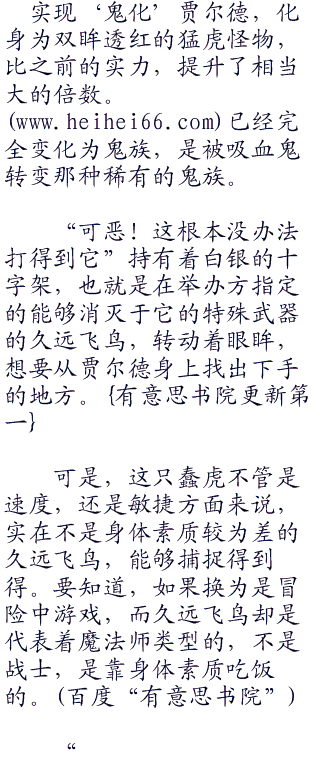 实现‘鬼化’贾尔德，化
身为双眸透红的猛虎怪物，
比之前的实力，提升了相当
大的倍数。
(www.heihei66.com)已经完
全变化为鬼族，是被吸血鬼
转变那种稀有的鬼族。
“可恶！这根本没办法
打得到它”持有着白银的十
字架，也就是在举办方指定
的能够消灭于它的特殊武器
的久远飞鸟，转动着眼眸，
想要从贾尔德身上找出下手
的地方。{有意思书院更新第
一}
可是，这只蠢虎不管是
速度，还是敏捷方面来说，
实在不是身体素质较为差的
久远飞鸟，能够捕捉得到
得。要知道，如果换为是冒
险中游戏，而久远飞鸟却是
代表着魔法师类型的，不是
战士，是靠身体素质吃饭
的。(百度“有意思书院”)
“